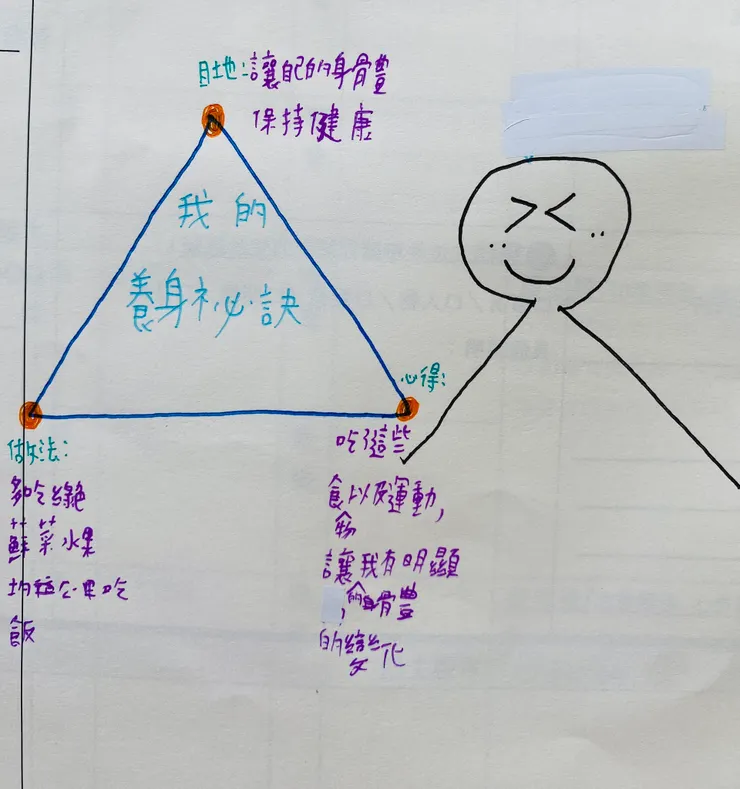 目地:讓自己的身體
保持健康
我的
養身祕訣
做法:
多吃
鮮菜水果
均
吃
飯
心得:
吃了這些
食物以及運動,
讓我有明顯
,的身體
的變化